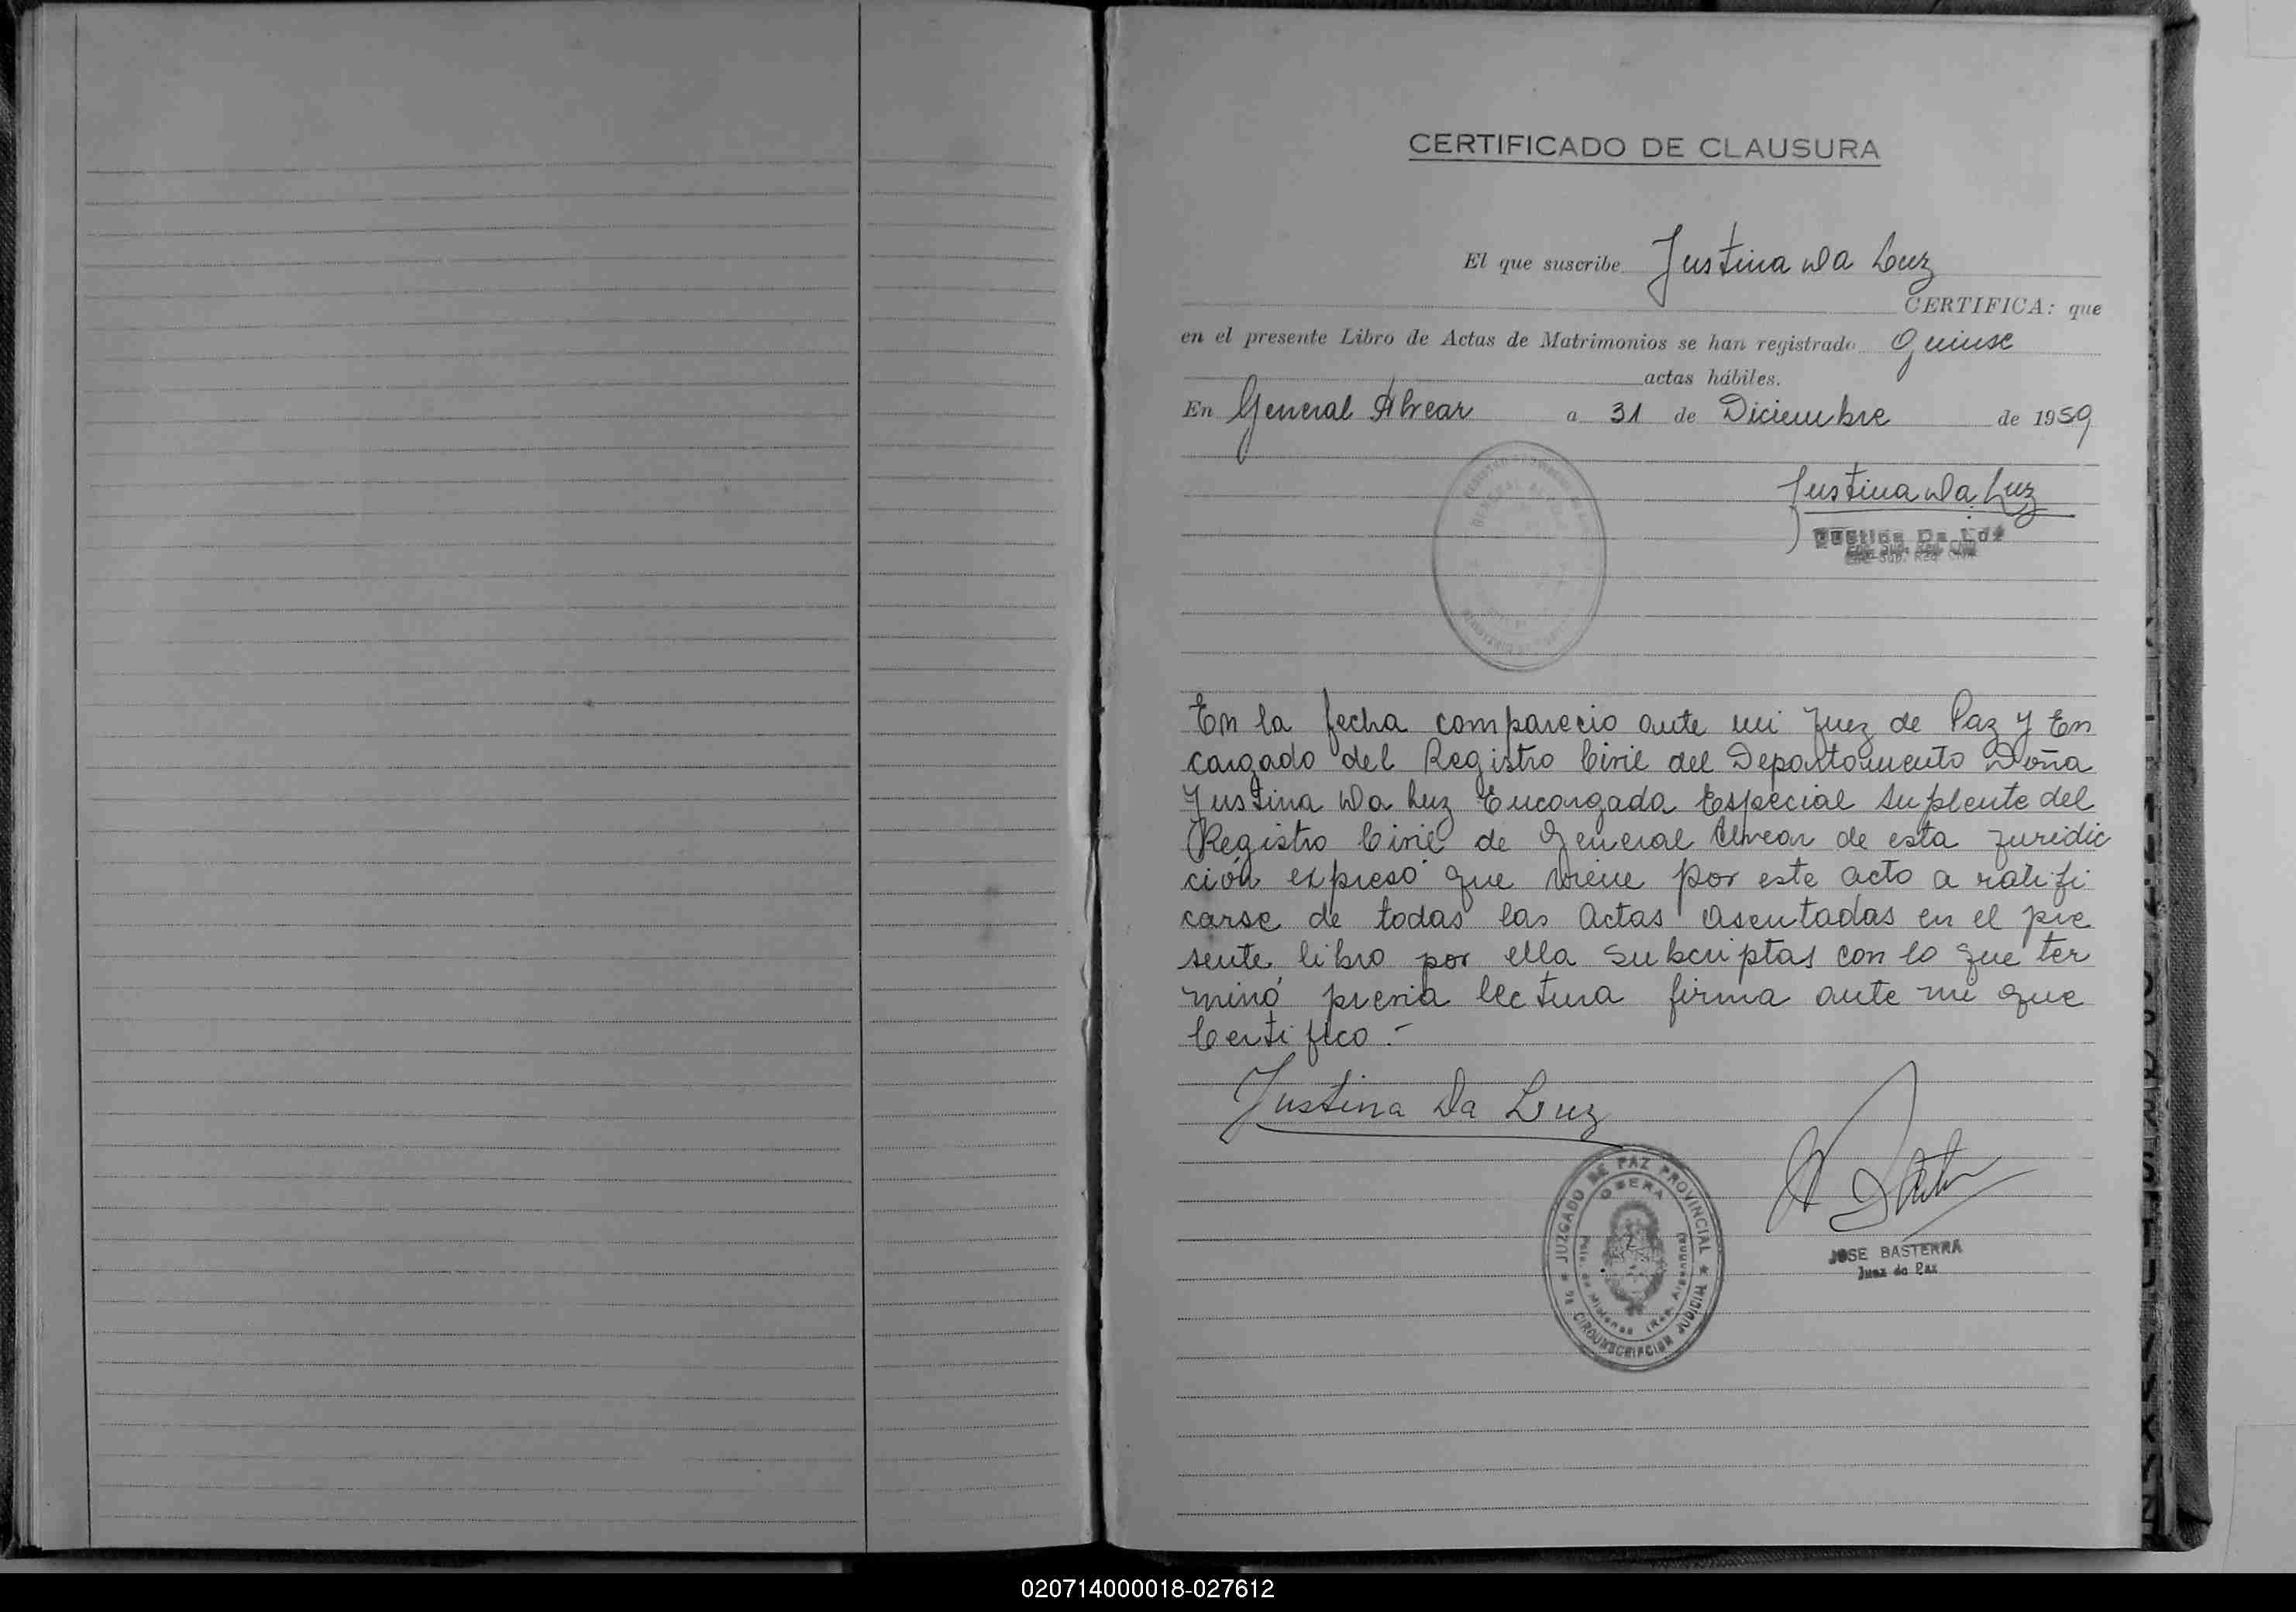 CERTIFICADO DE CLAUSURA
El que suscribe Justina Da Luz
CERTIFICA: que
en el presente Libro de Actas de Matrimonios se han registrado Quinse
actas hábiles.
En General Alvear a 31 de Diciembre de 1959
Justina Da Luz
Justina Da Luz
Enc. Sup. Reg. Civil
En la fecha comparecio ante mi Juez de Paz y En
cargado del Registro Civil del Departamento Doña
Justina Da Luz Encargada Especial Suplente del
Registro Civil de General Alvear de esta juridic
ción expresó que viene por este acto a ratifi
carse de todas las Actas asentadas en el pre
sente libro por ella subcriptas con lo que ter
minó previa lectura firma ante mi que
Certifico.-
Justina Da Luz
JUZGADO DE PAZ PROVINCIAL
OBERA
Pcia. de Misiones (Rep. Argentina)
CIRCUNSCRIPCION JUDICIAL
JOSE BASTERRA
Juez de Paz
020714000018-027612